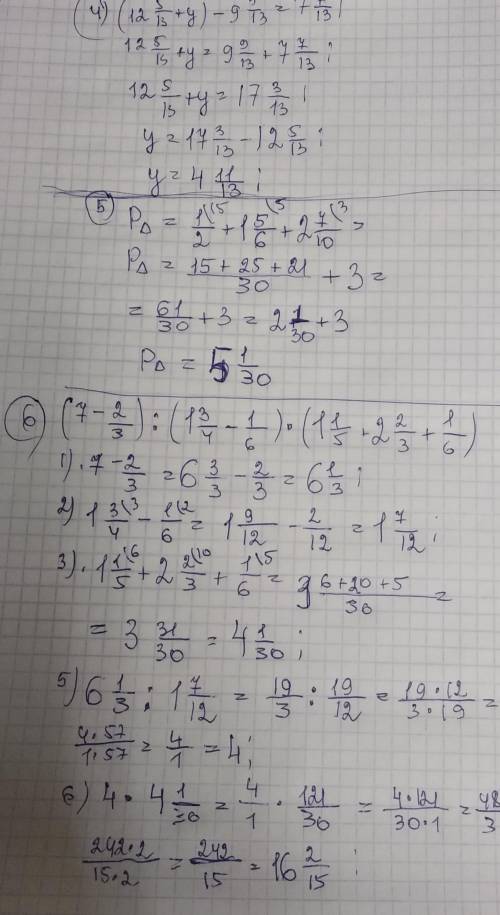 4) (12 5/13 + y) - 9 9/13 = 7 7/13;
12 5/13 + y = 9 9/13 + 7 7/13;
12 5/13 + y = 17 3/13;
y = 17 3/13 - 12 5/13;
y = 4 11/13;
5) P△ = 1/2\15 + 1 5/6\5 + 2 7/10\3 =
P△ = (15+25+21)/30 + 3 =
= 61/30 + 3 = 2 1/30 + 3
P△ = 5 1/30
6) (7 - 2/3) : (1 3/4 - 1/6) · (1 1/5 + 2 2/3 + 1/6)
1) · 7 - 2/3 = 6 3/3 - 2/3 = 6 1/3;
2) 1 3/4\3 - 1/6\2 = 1 9/12 - 2/12 = 1 7/12;
3) · 1 1/5\6 + 2 2/3\10 + 1/6\5 = 3 (6+20+5)/30 =
= 3 31/30 = 4 1/30;
5) 6 1/3 : 1 7/12 = 19/3 : 19/12 = (19·12)/(3·19) =
(4·57)/(1·57) = 4/1 = 4;
6) 4 · 4 1/30 = 4/1 · 121/30 = (4·121)/(30·1) =
(242·2)/(15·2) = 242/15 = 16 2/15;